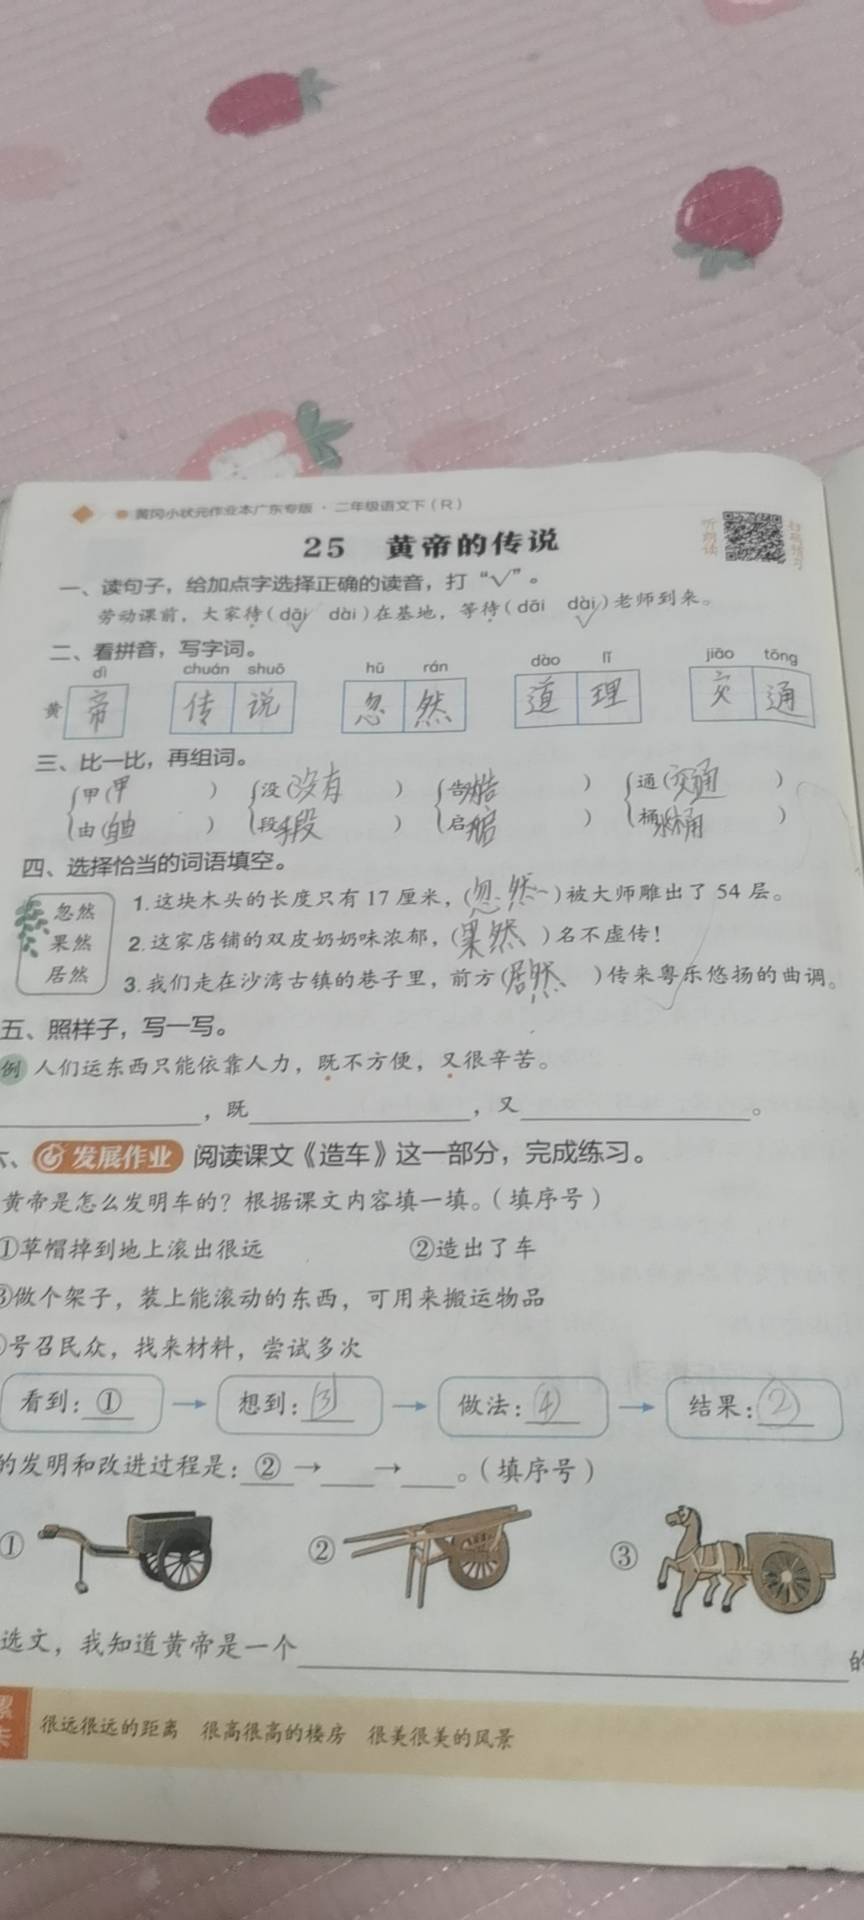 黄冈小状元作业本广东专版·二年级语文下(R)
听朗读
扫码预习
25 黄帝的传说
一、读句子，给加点字选择正确的读音，打“√”。
劳动课前，大家待(dāi√ dài)在基地，等待(dāi dài√)老师到来。
二、看拼音，写字词。
dì chuán shuō hū rán dào lǐ jiāo tōng
黄 帝 传说 忽然 道理 交通
三、比一比，再组词。
甲(甲) 没(没有) 告( ) 通(交通)
由(自由) 段(手段) 启( ) 桶(水桶)
四、选择恰当的词语填空。
忽然 1.这块木头的长度只有17厘米，(忽然)被大师雕出了54层。
果然 2.这家店铺的双皮奶奶味浓郁，(果然)名不虚传！
居然 3.我们走在沙湾古镇的巷子里，前方(居然)传来粤乐悠扬的曲调。
五、照样子，写一写。
例 人们运东西只能依靠人力，既不方便，又很辛苦。
，既，又。
六、发展作业 阅读课文《造车》这一部分，完成练习。
黄帝是怎么发明车的？根据课文内容填一填。(填序号)
①草帽掉到地上滚出很远 ②造出了车
③做个架子，装上能滚动的东西，可用来搬运物品
号召民众，找来材料，尝试多次
看到：① → 想到：③ → 做法：④ → 结果：②
的发明和改进过程是：② → → 。(填序号)
① ② ③
选文，我知道黄帝是一个 的
很远很远的距离 很高很高的楼房 很美很美的风景